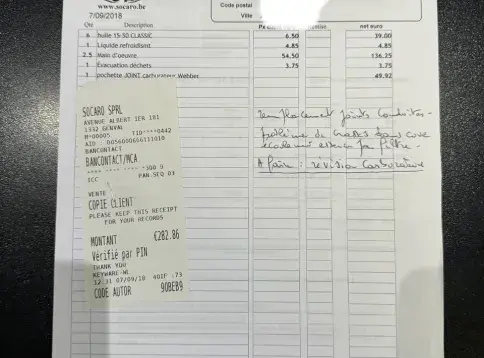 www.socaro.be
7/09/2018
Code postal
Ville
Qté Description net euro
6 huile 15-50 CLASSIC 6.50 39.00
1 Liquide refroidismt 4.85 4.85
2.5 Main d'oeuvre 54,50 136,25
1 Evacuation déchets 3.75 3.75
1 pochette JOINT carburateur Webber 49.92
SOCARO SPRL
AVENUE ALBERT IER 101
1332 GENVAL
M*00005 TID****0442
AID 0056000666111010
BANCONTACT
BANCONTACT/MCA
ICC PAN.SEQ 03
VENTE
COPIE CLIENT
PLEASE KEEP THIS RECEIPT
FOR YOUR RECORDS
MONTANT €282.86
Vérifié par PIN
THANK YOU
KEYWARE-WL
12:31 07/09/18
CODE AUTOR 90BEB9
Remplacement joints
problème de crasses dans cuve
A faire : révision carburateur